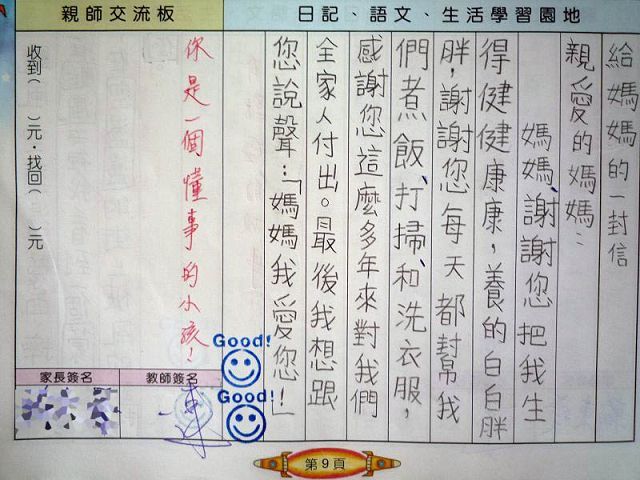 日記、語文、生活學習園地
給媽媽的一封信
親愛的媽媽：
媽媽、謝謝您把我生
得健健康康，養的白白胖
胖，謝謝您每天都幫我
們煮飯、打掃、和洗衣服，
感謝您這麼多年來對我們
全家人付出。最後我想跟
您說聲：「媽媽我愛您！」
Good!
Good!
親師交流板
你是一個懂事的小孩！
收到（ ）元．找回（ ）元
教師簽名
家長簽名
第9頁